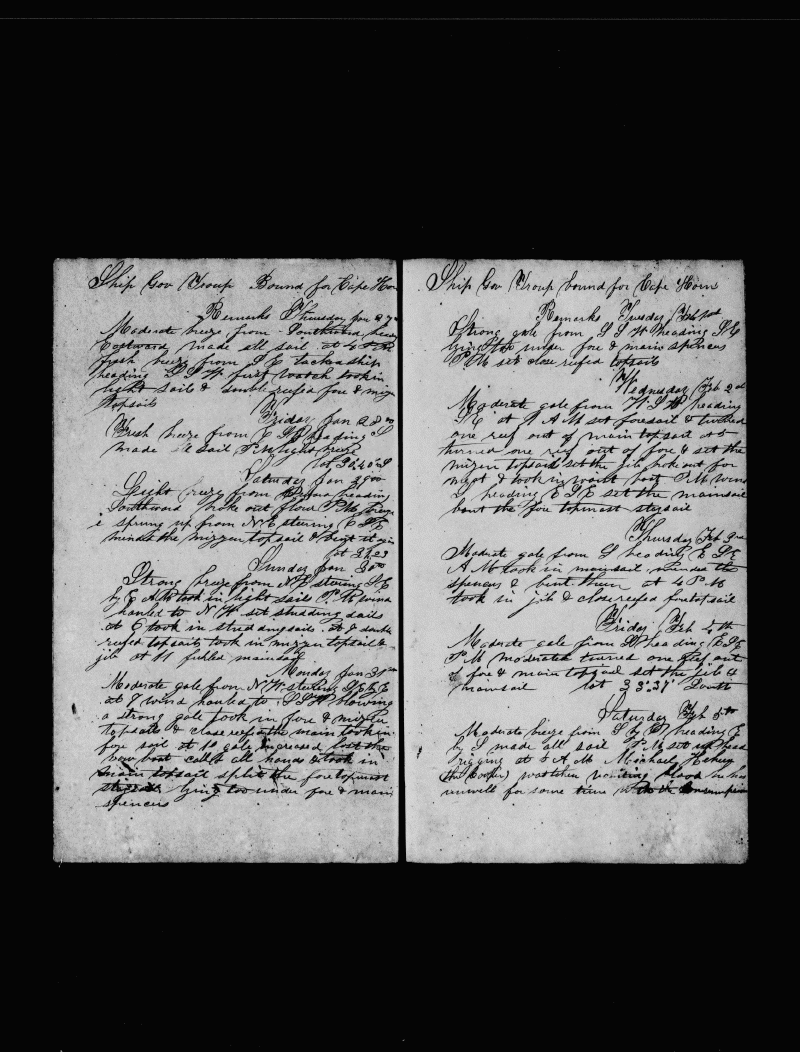 Ship Gov Troup Bound for Cape Horn
Remarks Thursday Jan 27th
Moderate breeze from Southward heading
Eastward made all sail at 4 P.M
fresh breeze from S E tacked ship
heading S S W first watch took in
light sails & double reefed fore & mizen
topsails
Friday Jan 28th
Fresh breeze from E S E heading S
made all sail P.M light breeze
lat 36.40 S
Saturday Jan 29th
Light breeze from heading
Southward broke out flour P.M breeze
sprung up from N E steering E S E
mended the mizzen topsail & bent it again
lat 37.23
Sunday Jan 30th
Strong breeze from N E steering S E
by E A.M took in light sail P.M wind
hauled to N W set studding sails
at 6 took in studdingsails at 7 double
reefed topsails took in mizzen topsail &
jib at 11 furled mainsail
Monday Jan 31st
Moderate gale from N W steering S E by E
at 9 wind hauled to S S W blowing
a strong gale took in fore & mizzen
topsails & close reefed the main took in
fore sail at 10 gale increased lost the
bow boat called all hands & took in
main topsail split the foretopmost
staysail lying too under fore & main
spencers
Ship Gov Troup bound for Cape Horn
Remarks Tuesday Feb 1st
Strong gale from S S W heading S E
lying too under fore & main spencers
P.M set close reefed topsails
Wednesday Feb 2nd
Moderate gale from W S W heading
S E at 7 A M set foresail & turned
one reef out of main topsail at 8
turned one reef out of fore & set the
mizen topsail set the jib broke out for
& took in waist boat P.M wind
S heading E S E set the mainsail
bent the fore topmost staysail
Thursday Feb 3rd
Moderate gale from S heading E S E
A M took in mainsail mended the
spencers & bent them at 4 P M
took in jib & close reefed foretopsail
Friday Feb 4th
Moderate gale from S heading E S E
P.M moderated turned one reef out
fore & main topsail set the jib &
mainsail lat 38.37 South
Saturday Feb 5th
Moderate breeze from S by E heading E
by S made all sail P.M set up head
rigging at 8 A M Michael
(the Cooper) was taken vomiting blood he has
unwell for some time with the consumption